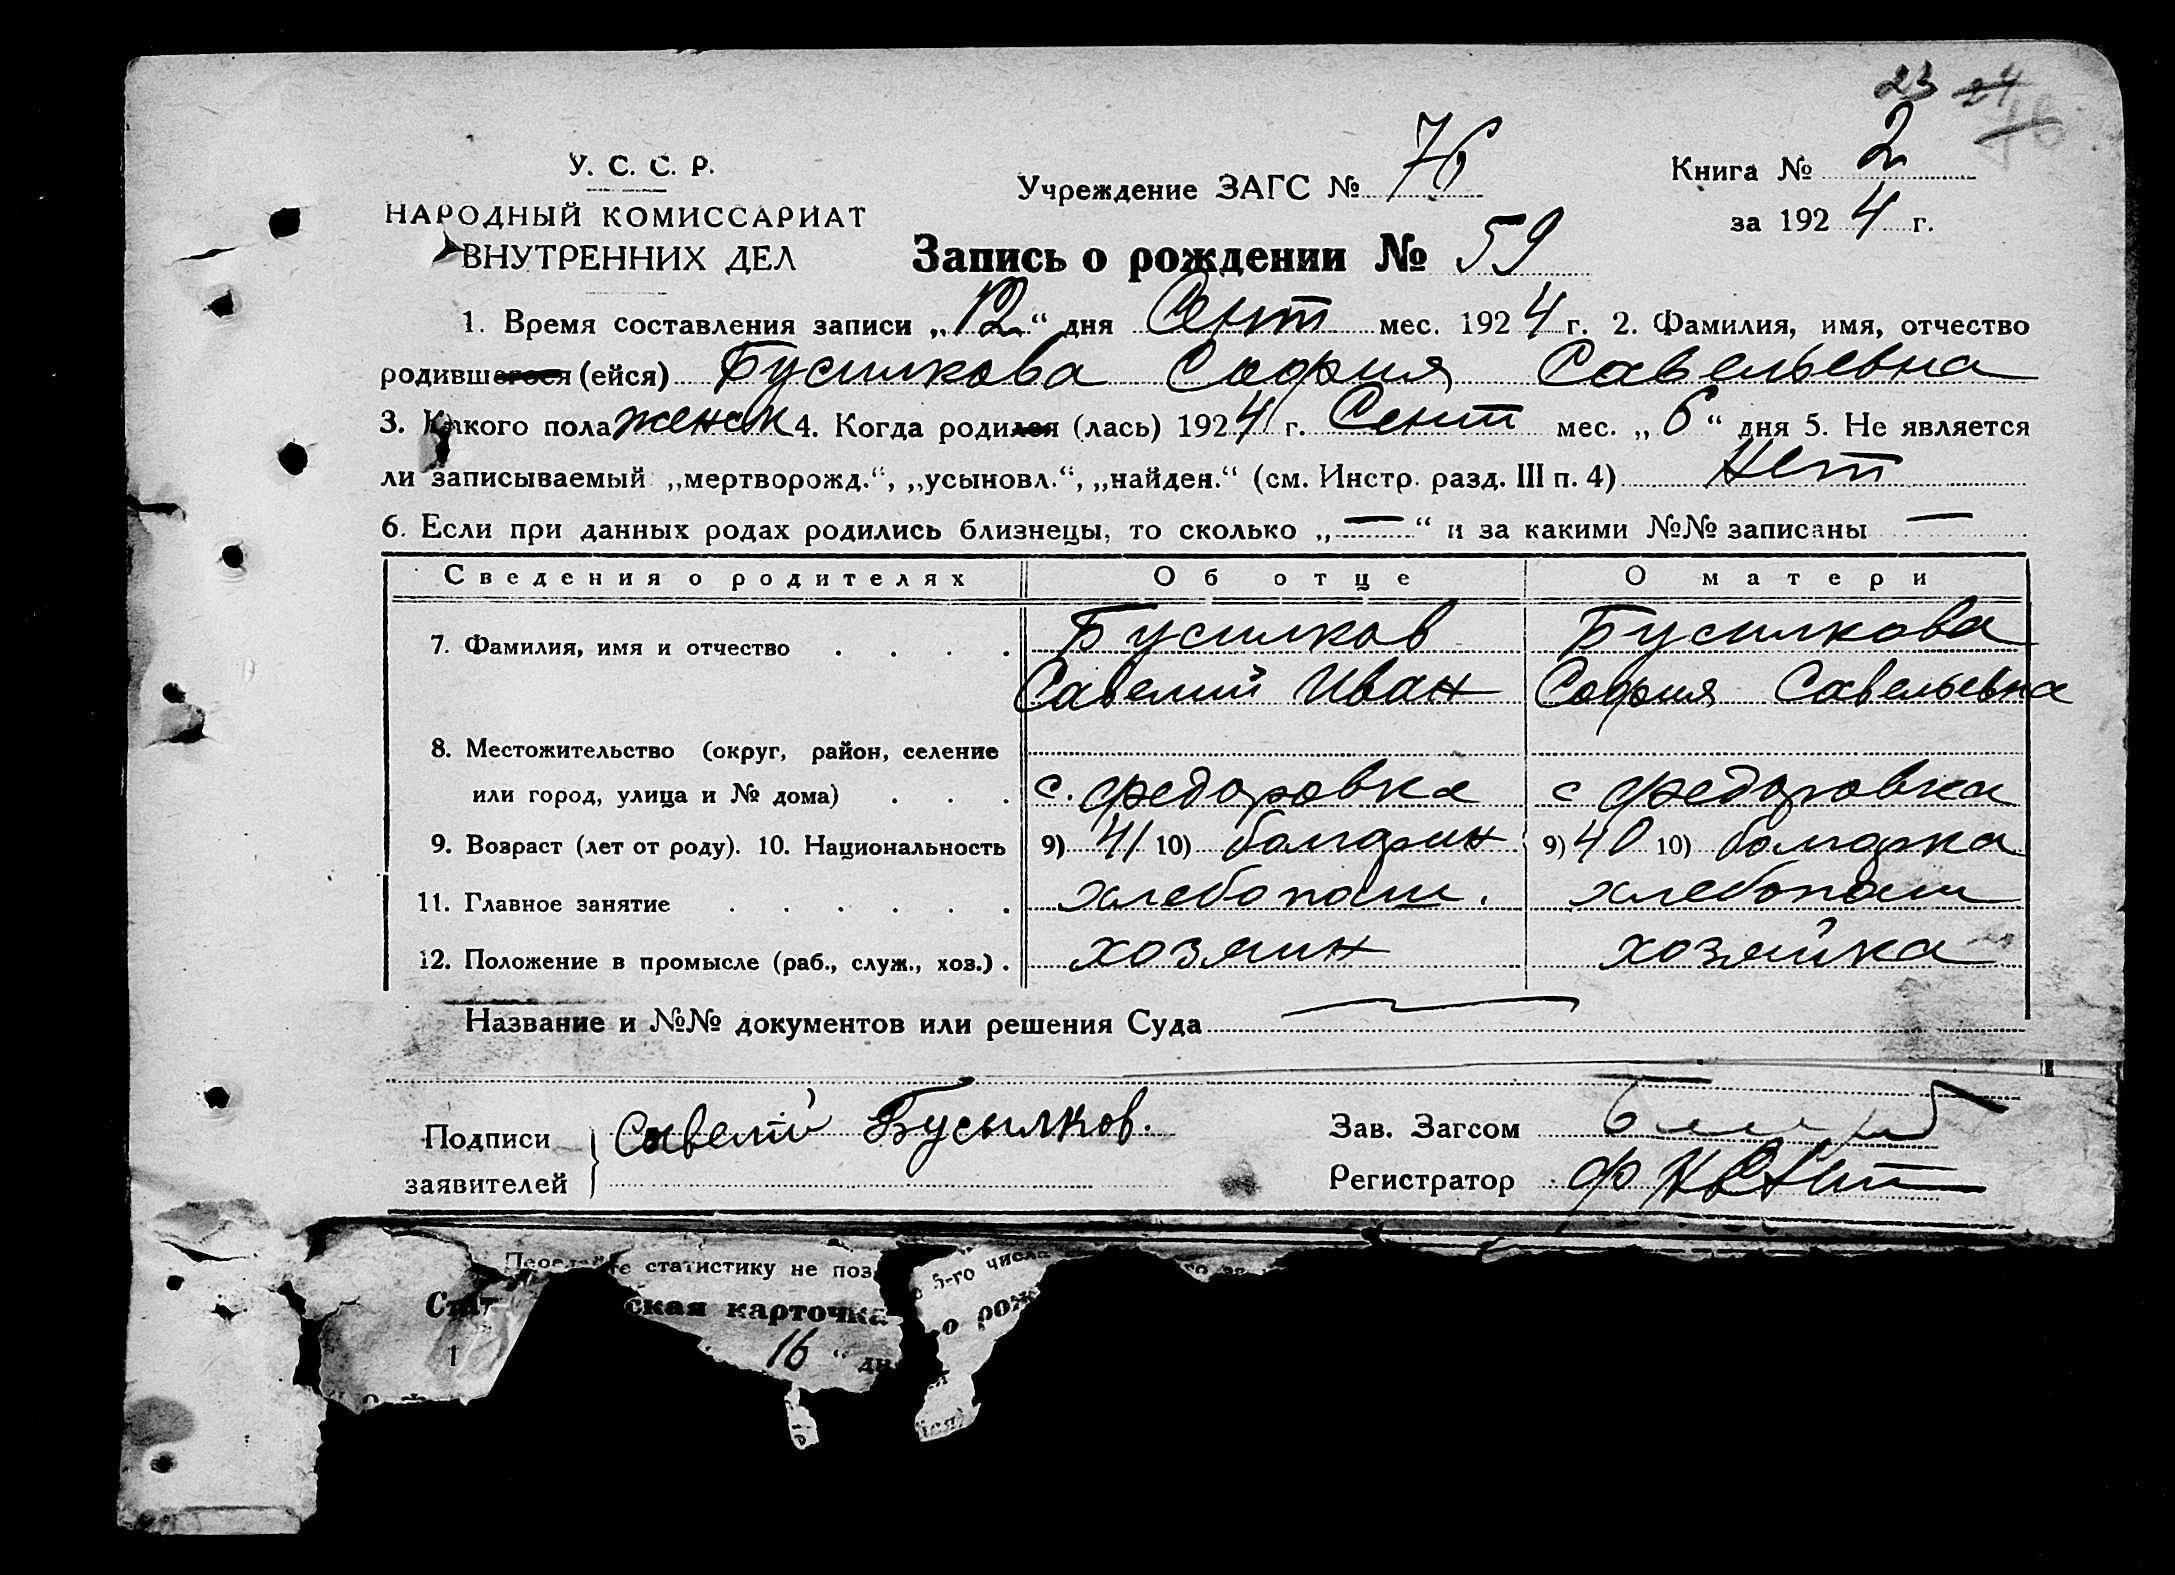 23 24
У. С. С. Р.
НАРОДНЫЙ КОМИССАРИАТ
ВНУТРЕННИХ ДЕЛ
Учреждение ЗАГС № 76
Книга № 2
за 192 4 г.
Запись о рождении № 59
1. Время составления записи „12“ дня Сент мес. 192 4 г. 2. Фамилия, имя, отчество
родившегося (ейся) Бусилкова София Савельевна
3. Какого пола женск 4. Когда родился (лась) 192 4 г. Сент мес. „6“ дня 5. Не является
ли записываемый „мертворожд.“, „усыновл.“, „найден.“ (см. Инстр. разд. III п. 4) Нет
6. Если при данных родах родились близнецы, то сколько „—“ и за какими №№ записаны —
Сведения о родителях Об отце О матери
7. Фамилия, имя и отчество . . . . Бусилков Бусилкова
Савелий Иван София Савельевна
8. Местожительство (округ, район, селение
или город, улица и № дома) . . . с. Федоровка с Федоровка
9. Возраст (лет от роду). 10. Национальность 9) 41 10) болгарин 9) 40 10) болгарка
11. Главное занятие . . . . . . хлебопаш. хлебопаш
12. Положение в промысле (раб., служ., хоз.) . хозяин хозяйка
Название и №№ документов или решения Суда
Подписи
заявителей
Савелий Бусылков.
Зав. Загсом
Регистратор
статистику не поз
5-го числа
ская карточка
о рож
1 16 “ дн